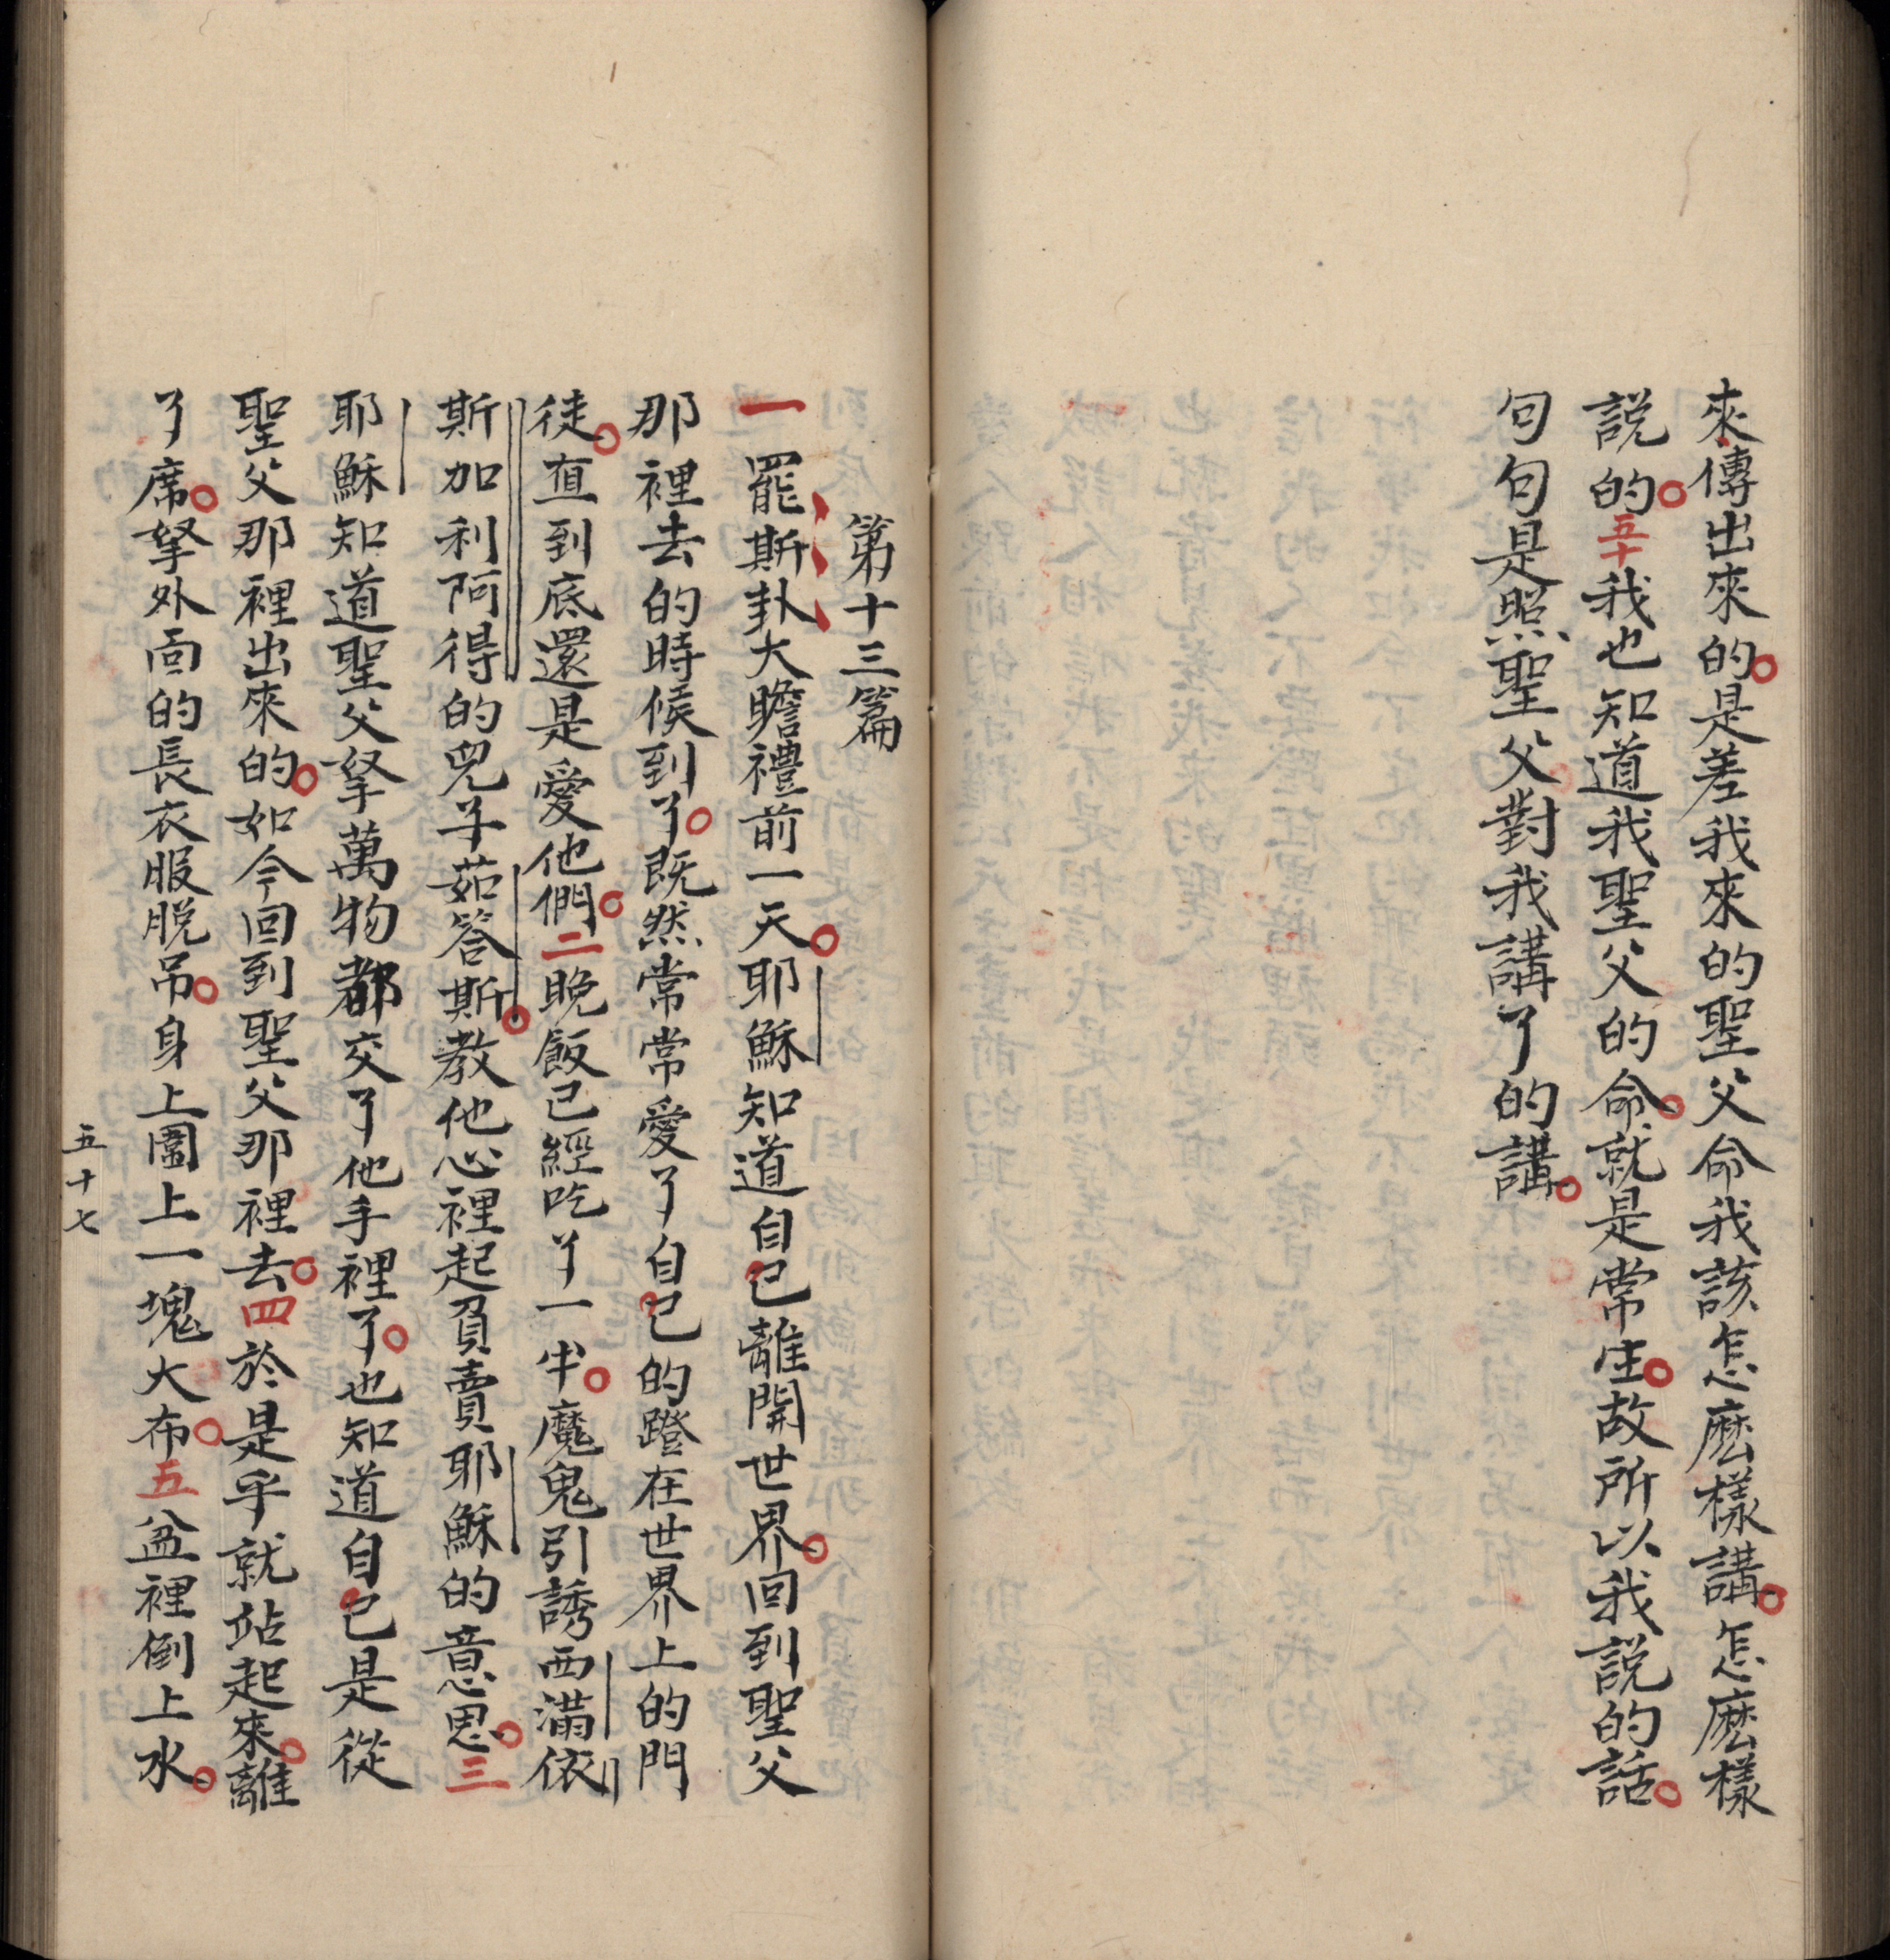 來傳出來的。是差我來的聖父命我該怎麽樣講。怎麽樣
説的。五十我也知道我聖父的命。就是常生。故所以我説的話。
句句是照聖父對我講了的講。
第十三篇
一罷斯卦大瞻禮前一天。耶穌知道自己離開世界。回到聖父
那裡去的時候到了。既然常常愛了自己的蹬在世界上的門
徒。直到底還是愛他們。二晚飯已經吃了一半。魔鬼引誘西滿依
斯加利阿得的兒子茹答斯。教他心裡起負賣耶穌的意思。三
耶穌知道聖父拏萬物都交了他手裡了。也知道自己是從
聖父那裡出來的。如今回到聖父那裡去。四於是乎就站起來。離
了席。拏外面的長衣服脱吊。身上圍上一塊大布。五盆裡倒上水。
五十七